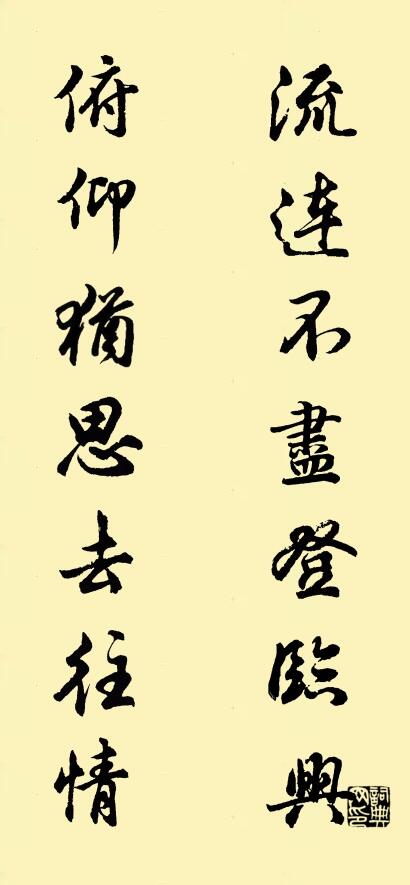 流連不盡登臨興
俯仰猶思去往情
詞典